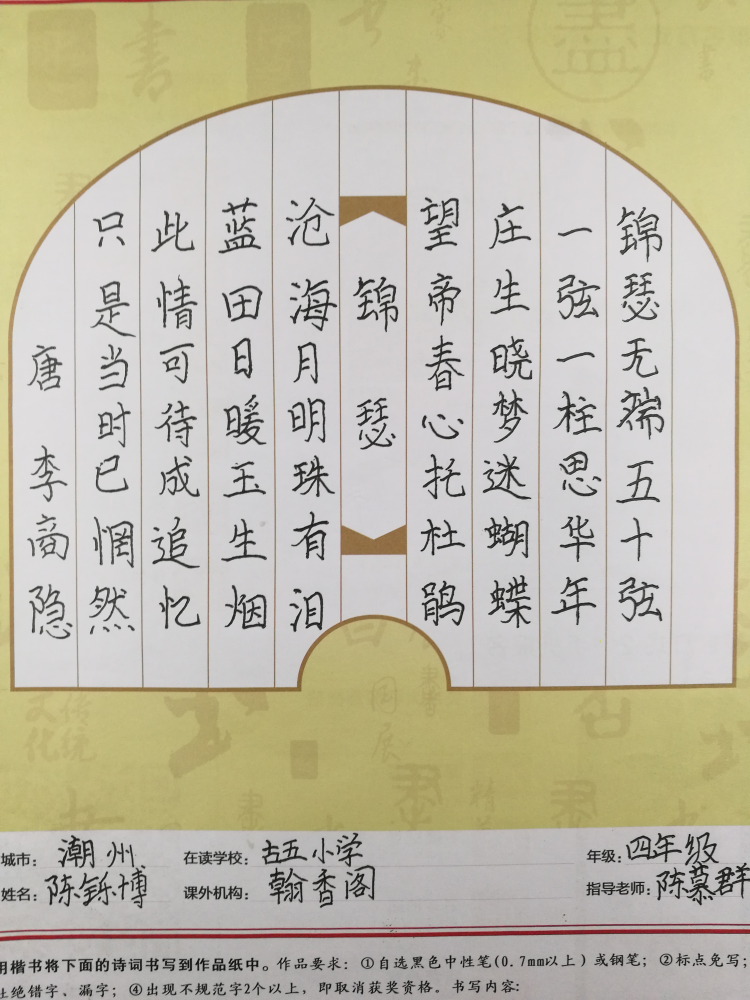 锦瑟无端五十弦
一弦一柱思华年
庄生晓梦迷蝴蝶
望帝春心托杜鹃
锦瑟
沧海月明珠有泪
蓝田日暖玉生烟
此情可待成追忆
只是当时已惘然
唐 李商隐
城市：潮州 在读学校：古五小学 年级：四年级
姓名：陈铄博 课外机构：翰香阁 指导老师：陈慕群
用楷书将下面的诗词书写到作品纸中。作品要求：①自选黑色中性笔(0.7mm以上)或钢笔；②标点免写；
杜绝错字、漏字；④出现不规范字2个以上，即取消获奖资格。书写内容：